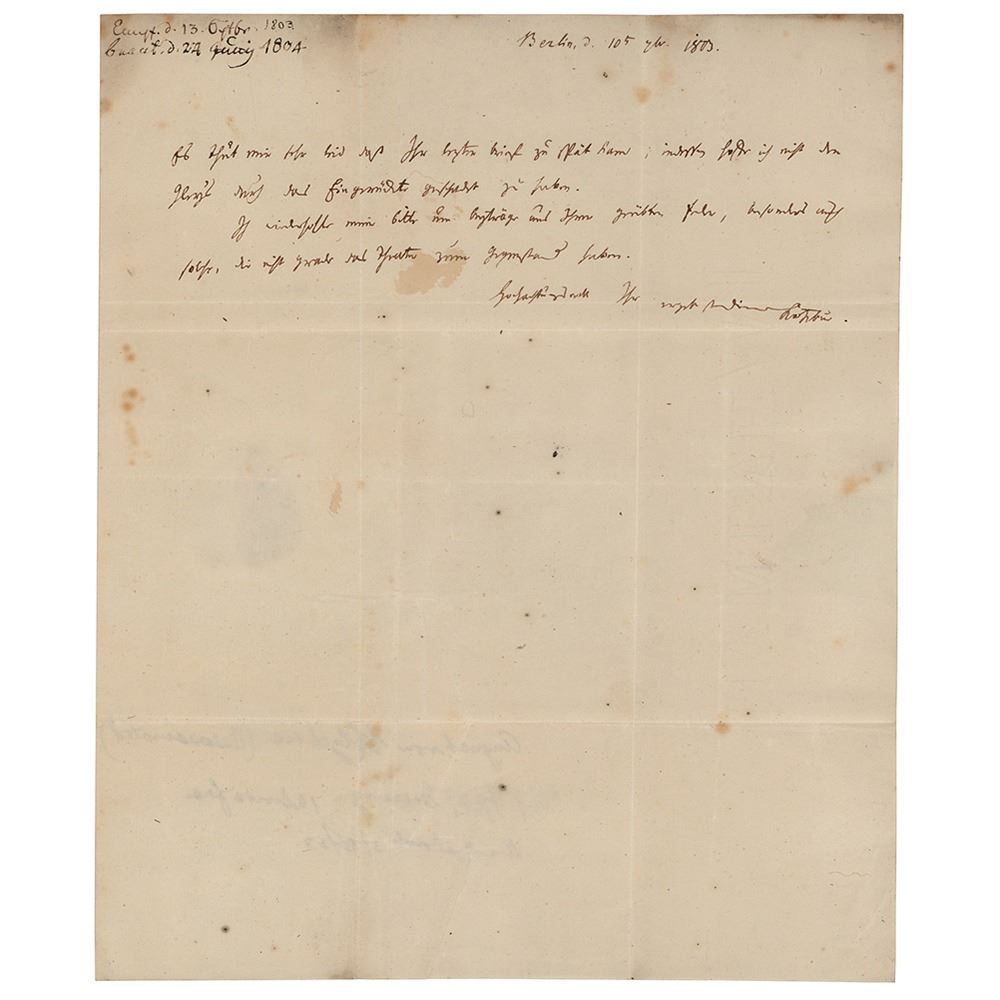 Empf. d. 13. Octbr. 1803
beant. d. 24 Junij 1804
Berlin, d. 10t 1803.
Es thut mir sehr leid daß Ihr lezter brief zu spät kam; indessen hoffe ich nicht den
durch das Eingerückte geschadet zu haben.
Ich wiederhohle meine bitte um beyträge aus Ihrer geübten Feder, besonders auch
solche, die nicht grade das Theater zum Gegenstand haben.
Hochachtungsvoll Ihr Kotzebue.